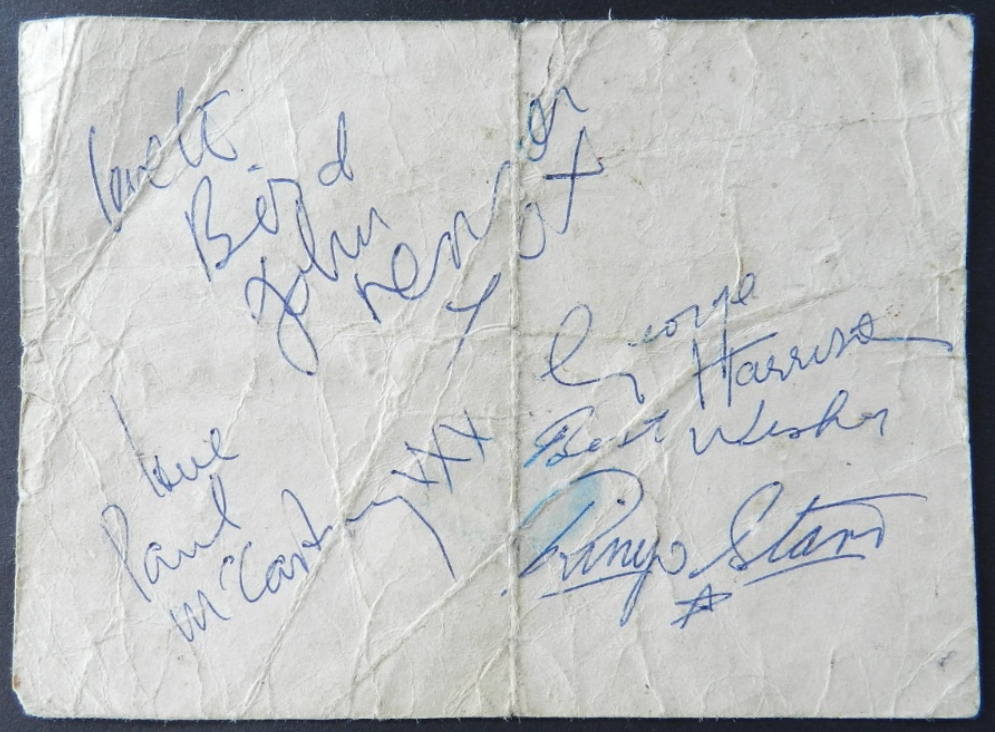 love to
Bird
John
Lennon
X
love
Paul
McCartney XXX
George
Harrison
Best Wishes
Ringo Starr